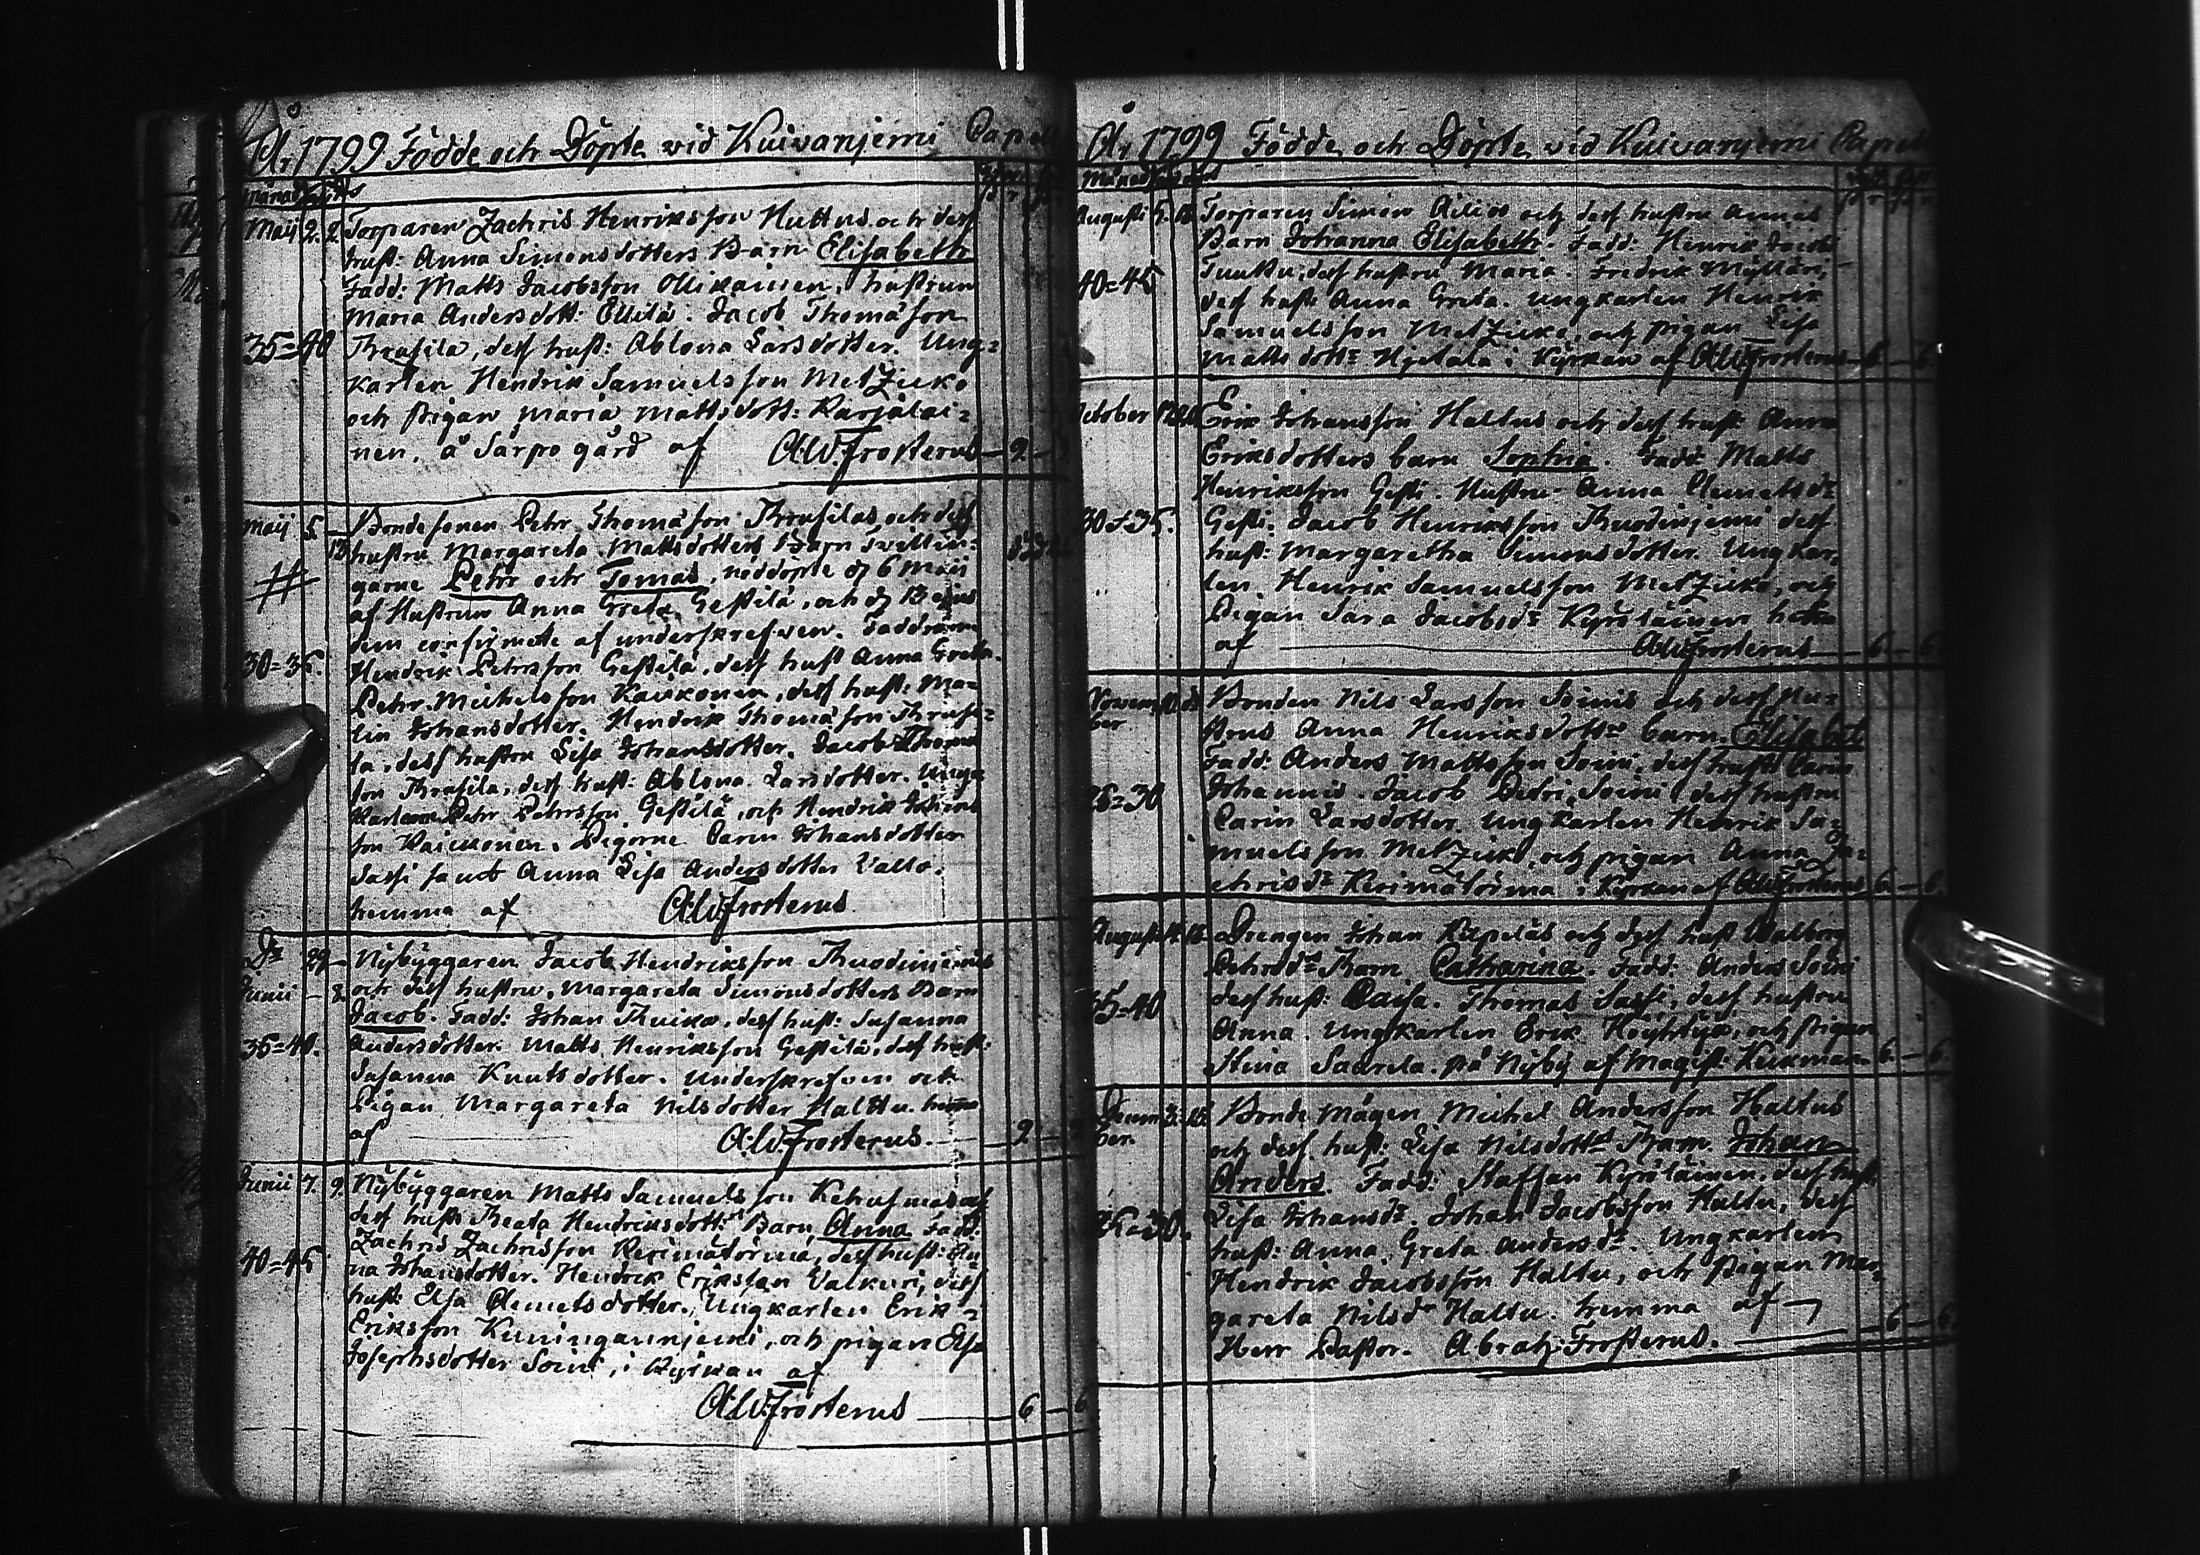 År 1799 Födde och Döpte vid Kuivanjemi Capell
Maij 2. 2. Torparen Zachris Henriksson Huttus och dess
hust: Anna Simonsdotters Barn Elisabeth
Fadd: Matts Jacobsson Ollikainen, hustrun
Maria Andersdott: Ellilä. Jacob Thomæson
35=40 Thrasila, dess hust: Ablona Larsdotter. Ung=
karlen Hendrik Samuelsson Metzicko
och Pigan Maria Mattsdott: Karjalai=
nen, å Sarpo gård af A:W:Frosterus 9
Maij 5. Bonde sonen Petr Thomæson Thrasilas och dess
13. hustru Margareta Mattsdotters Barn tvillin=
garne Petr och Tomas, nöddöpte d 6 Maij
af Hustrun Anna Greta Gestilä, och d 13 ejus
dem confirmete af underskrefven. Faddrarne
30=35. Hendrik Petrsson Gestilä, dess hust Anna Greta.
Petr Michelsson Kaickonen, dess hust: Ma=
lin Johansdotter. Hendrik Thomæson Thrasi=
la, dess hustru Lisa Johansdotter. Jacob Thomæ
son Thrasila, dess hust: Ablona Larsdotter. Unga
Karlarne Petr Petrsson Gestilä, och Hendrik Johans
son Kaickonen. Pigorne Carin Johansdotter
Sassi samt Anna Lisa Andersdotter Valto.
hemma af A:W:Frosterus
Dº 29 Nybyggaren Jacob Hendriksson Thuodinjemis
Junii 2. och dess hustru, Margareta Simonsdotters Barn
Jacob. Fadd: Johan Thuiko, dess hust: Susanna
35=40. Andersdotter. Matts Henriksson Gestilä, dess hust:
Susanna Knutsdotter. Underskrefven och
Pigan Margareta Nilsdotter Halttu. hemma
af A:W:Frosterus 9
Junii 7. 9. Nybyggaren Matts Samuelsson Kehusmas och
dess hust: Beata Hendriksdottrs Barn Anna Fadd:
Zachris Zachrisson Kerimätörmä, dess hust: An
40=45 na Johansdotter. Hendrik Eriksson Valkuri, dess
hust: Elsa Clemetsdotter. Ungkarlen Erik
Eriksson Kuninganniemi, och pigan Elsa
Josephsdotter Soini, i Kyrkan af
A:W:Frosterus 6 6
År 1799 Födde och Döpte vid Kuivanjemi Capell
Augusti Torparen Simon Ailios och dess hustru Annas
Barn Johanna Elisabeth. Fadd: Henrik Jacobs
Tuuku, dess hustru Maria. Fredrik Myllari,
40=45 dess hust: Anna Greta. Ungkarlen Henrik
Samuelsson Metzicko, och pigan Lisa
Matts dottr Hyetala i Kyrkan af A:W:Frosterus 6 6
October Erik Johansson Haltus och dess hust: Anna
Eriksdotters barn Sophia. Fadd: Matts
Henriksson Gesti. Hustru Anna Clemetsdr
30=35. Gesti. Jacob Henriksson Thuodinjemi dess
hust: Margaretha Simonsdotter. Ungkar
len Henrik Samuelsson Metzicko, och
Pigan Sara Jacobsdr Kyröläinen hema
af A:W:Frosterus 6 6
Novem ber Bonden Nils Larsson Soinis och dess Hu=
strus Anna Henriksdottrs barn Elisabet
Fadd: Anders Mattsson Soini, dess hust Carin
25=30 Johannis. Jacob Petri Soini, dess hustru
Carin Larsdotter. Ungkarlen Henrik Sa=
muelsson Metzicko, och pigan Anna Za=
chrisdr Kerimätörmä i Kyrkan af A:W:Frosterus 6 6
Augusti Drengen Johan Kapeläs och dess hust Walborg
Petrsdrs Barn Catharina. Fadd: Anders Soini
35=40 dess hust: Caisa. Thomas Sassi, dess hustru
Anna. Ungkarlen Erik Höyhtyä, och Pigan
Stina Saarela. på Nyby af Magist: Keckman 6 6
Decem ber. Bonde Mågen Michel Andersson Haltus
och dess hust: Lisa Nilsdottrs Barn Johan
Anders. Fadd: Staffan Kyröläinen, dess hust
25=30. Lisa Johansdr. Johan Jacobsson Haltu, dess
hust: Anna Greta Andersdr. Ungkarlen
Hendrik Jacobsson Haltu, och Pigan Mar=
gareta Nilsdr Haltu. hemma af
Herr Pastor. Abrah: Frosterus. 6 6